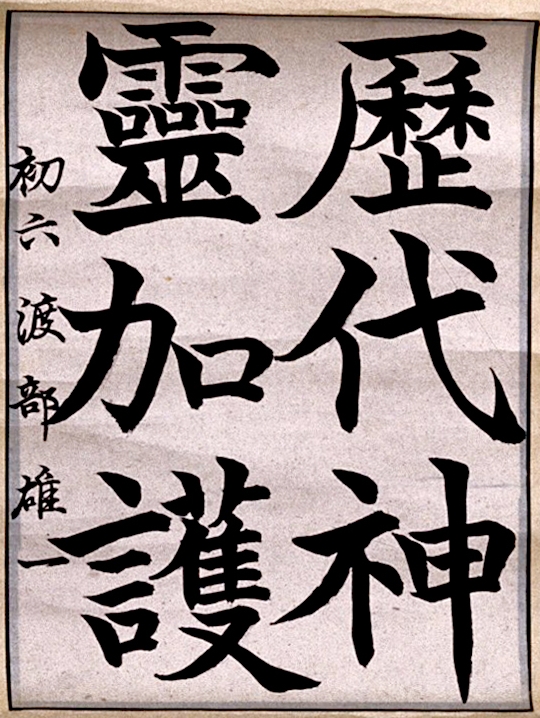 歷代神
靈加護
初六 渡部雄一